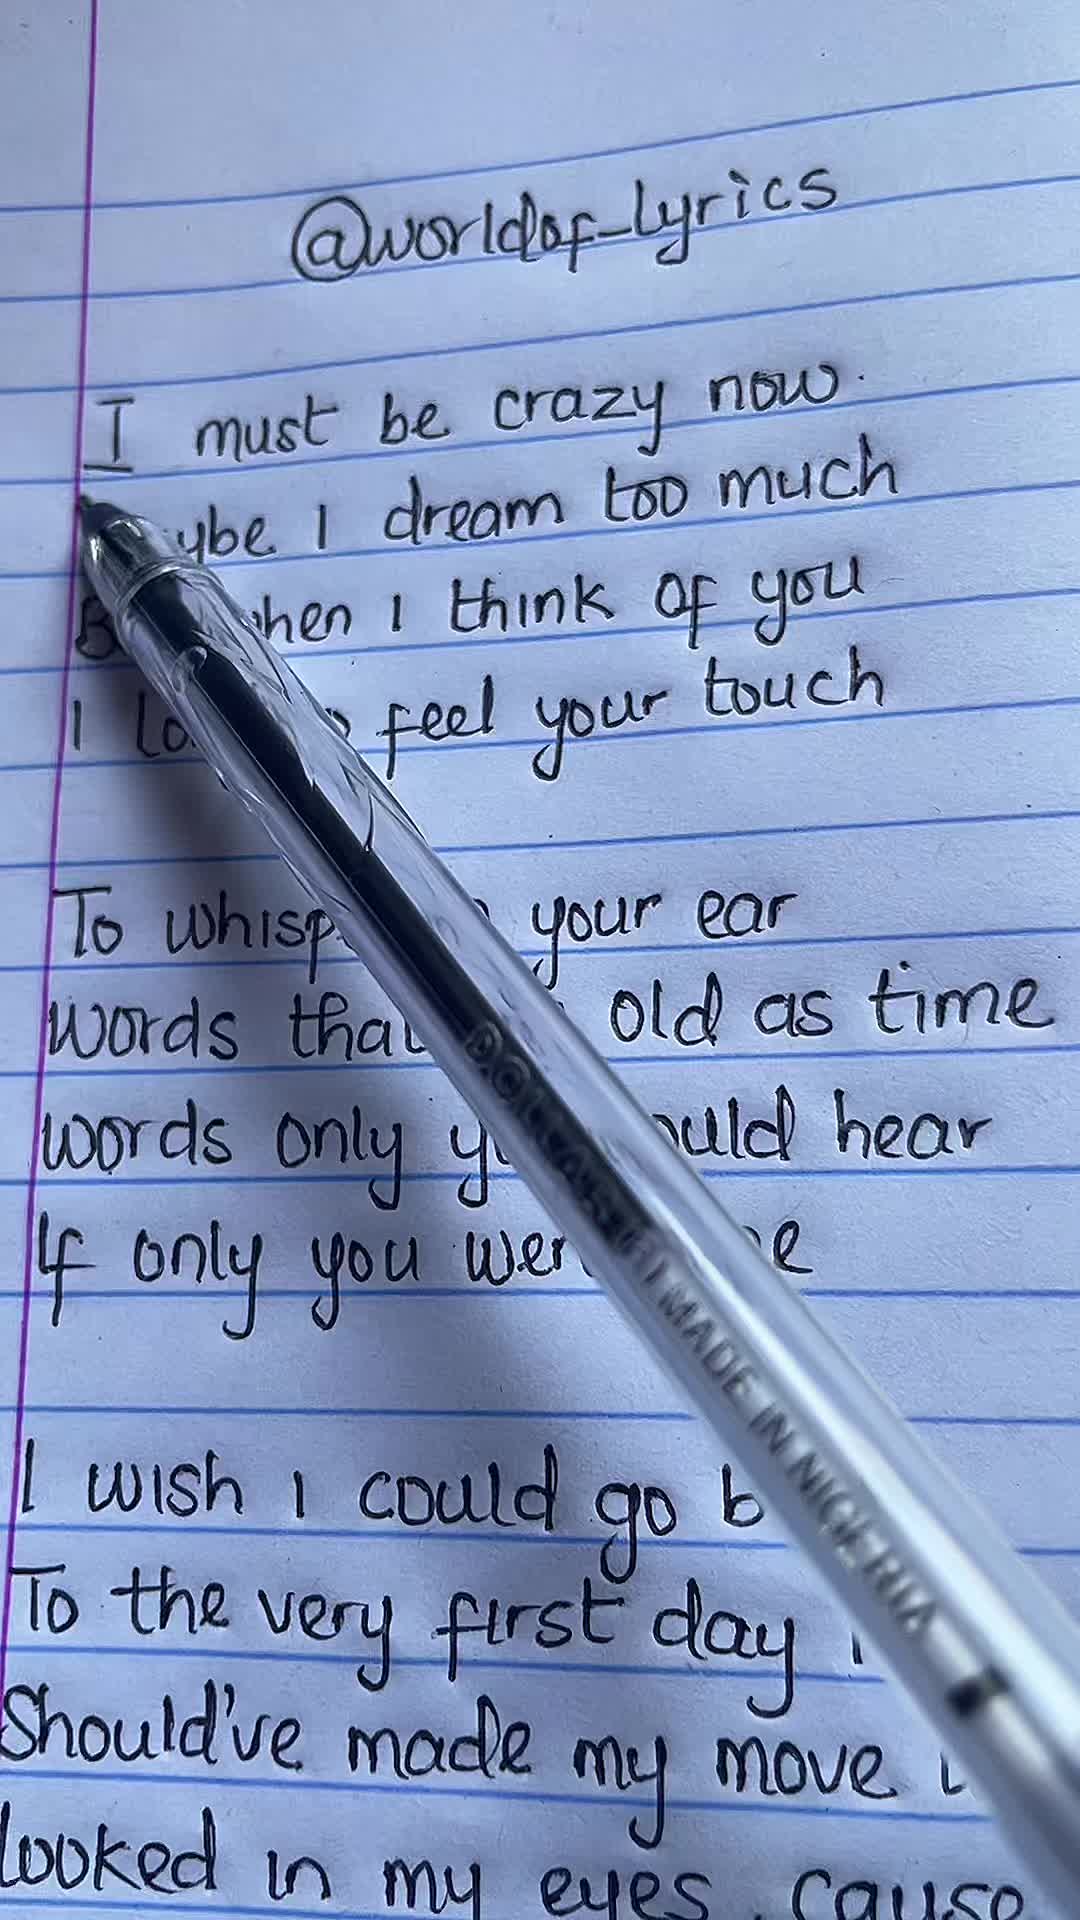 @worldof_lyrics
I must be crazy now.
ybe I dream too much
B hen I think of you
I lo feel your touch
To whisp your ear
words that old as time
words only y ould hear
If only you wer e
I wish I could go b
To the very first day I
Should've made my move
looked in my eyes, cause
DOLLAR MADE IN NIGERIA